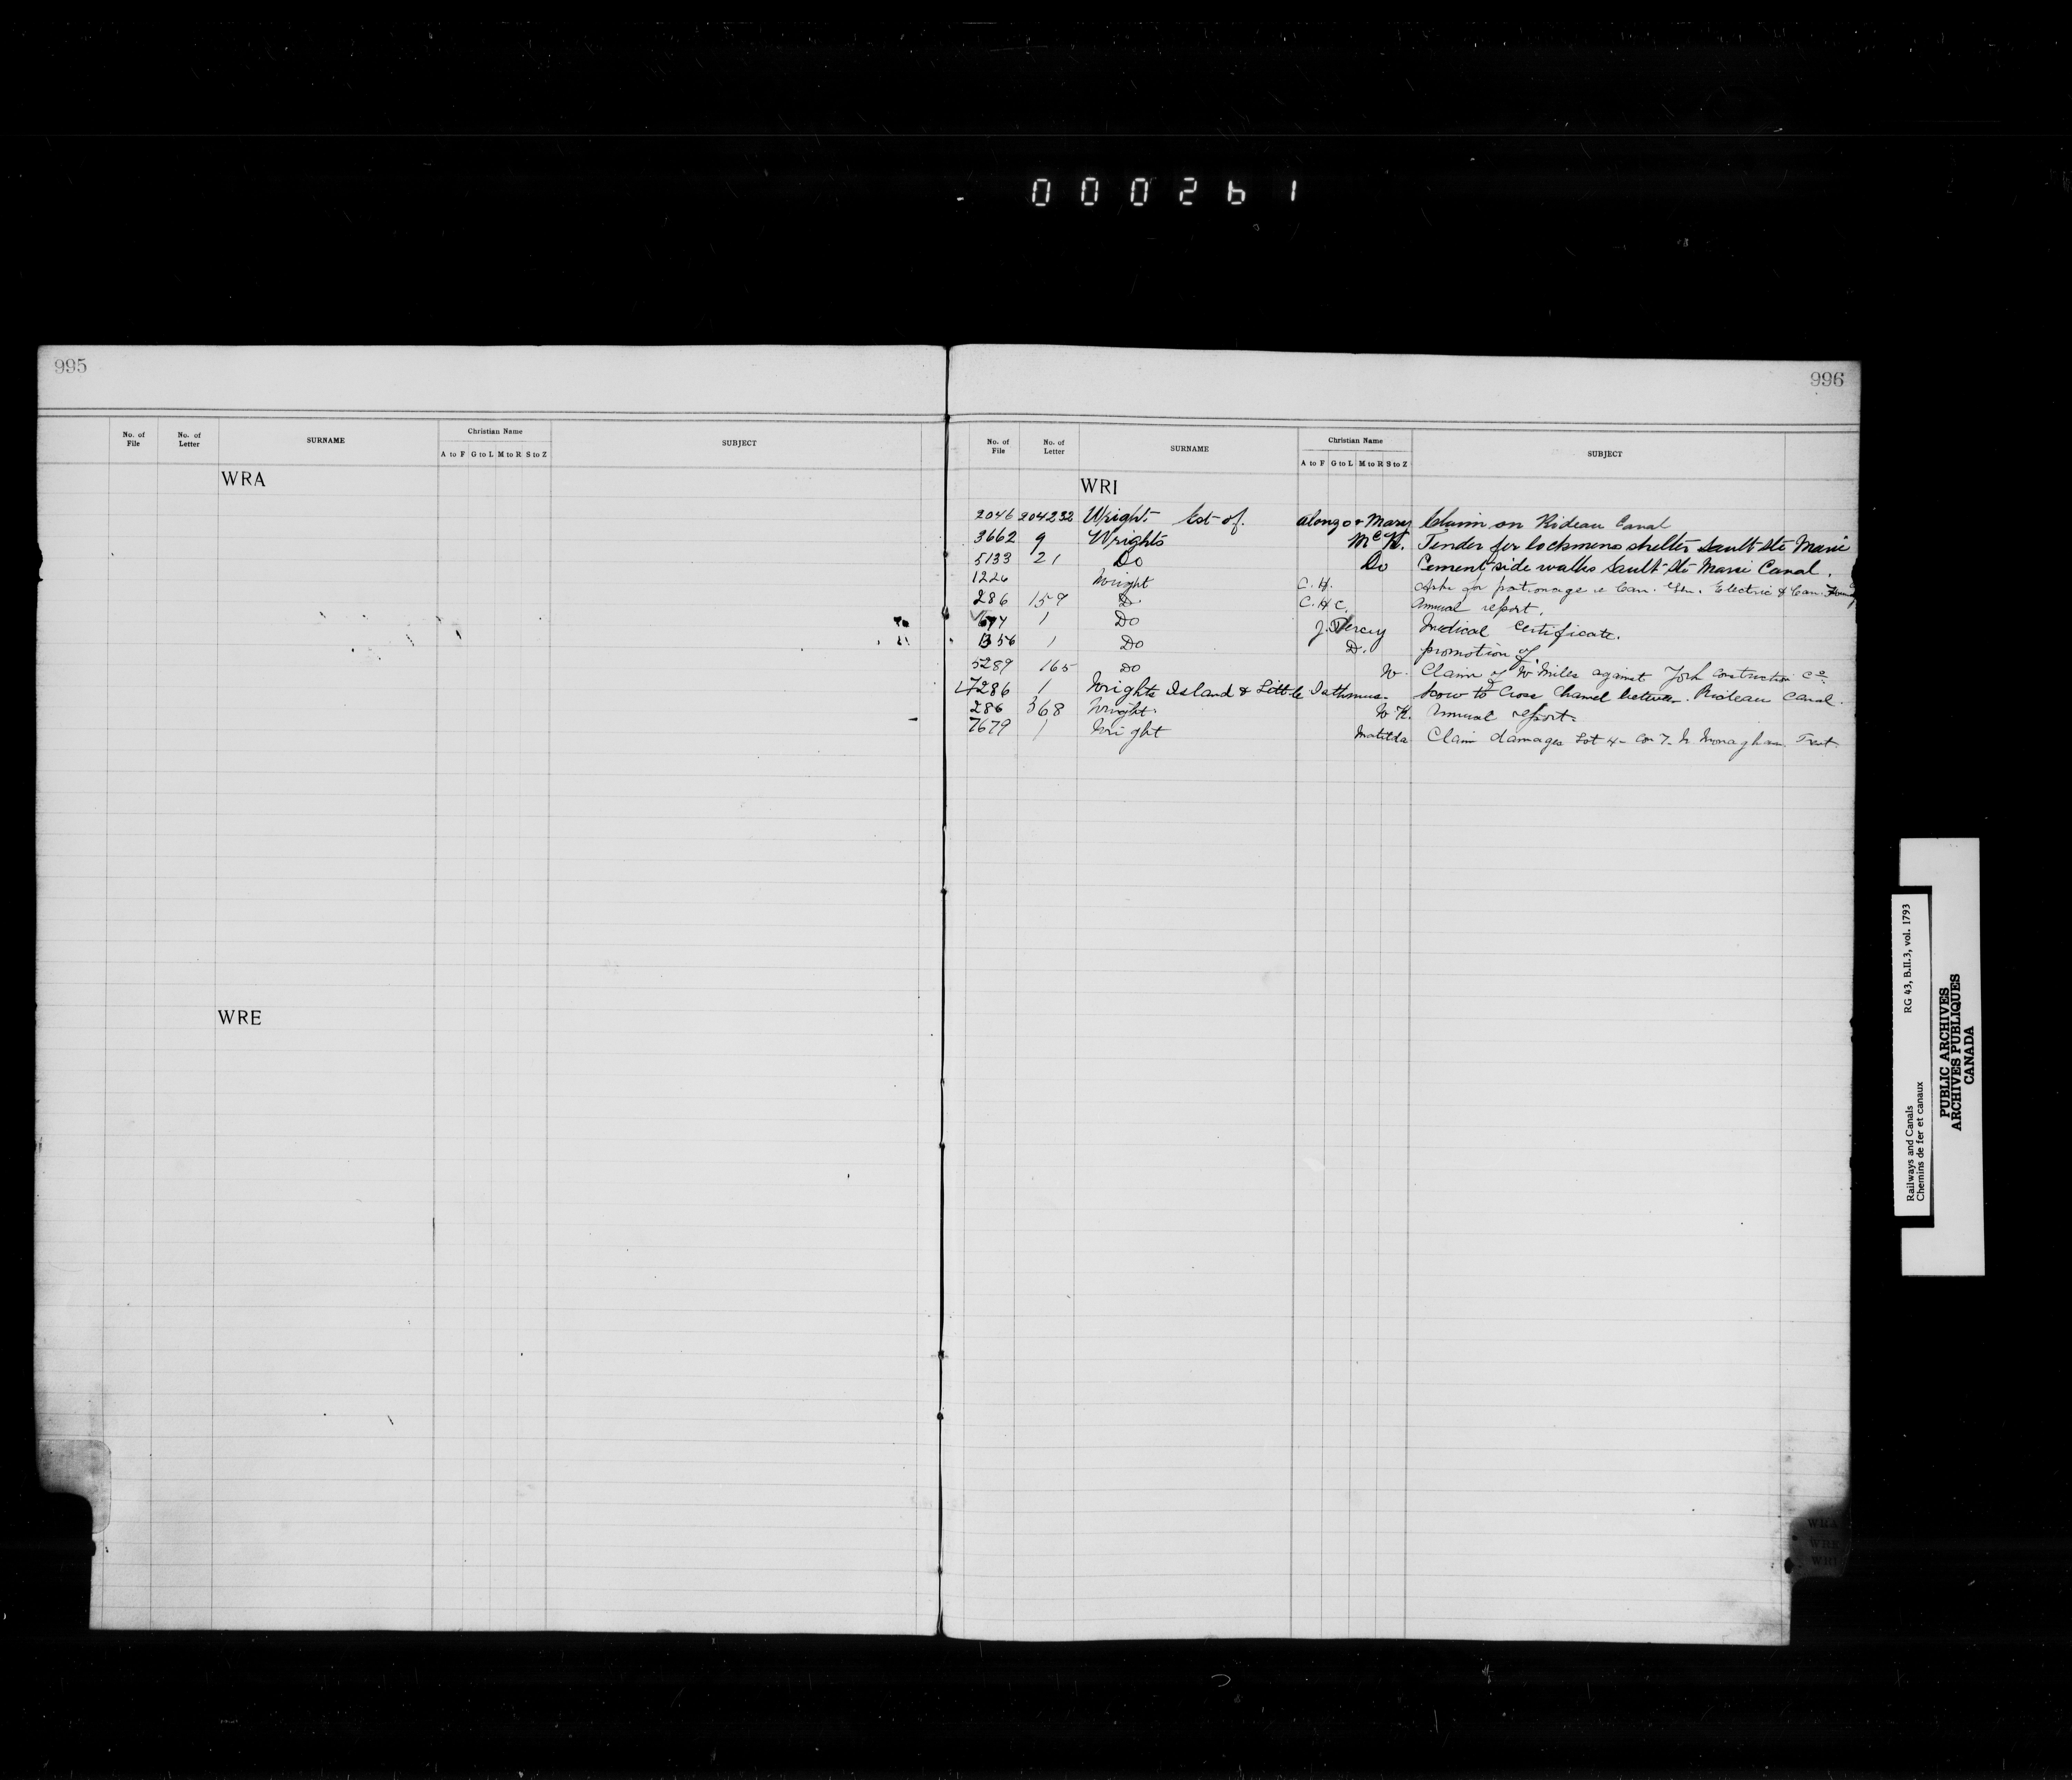 000261
995
No. of File No. of Letter SURNAME Christian Name A to F G to L M to R S to Z SUBJECT
WRA
WRE
996
No. of File No. of Letter SURNAME Christian Name A to F G to L M to R S to Z SUBJECT
WRI
2046 204232 Wright. Est of. Alonzo & Mary Claim on Rideau Canal
3662 9 Wrights McK. Tender for lockmens shelter Sault Ste Marie
5133 21 Do Do Cement side walks Sault Ste Marie Canal.
1226 Wright C. H. Asks for patronage re Can. Gen. Electric & Can.
286 159 Do C. H. C. Annual report.
1 Do J. Percy Medical Certificate.
1356 1 Do D. promotion of
5289 165 Do W. Claim of W Miles against York Construction Co.
7286 1 Wrights Island & Little Isthmus. Scow to Cross Channel between. Rideau Canal.
286 368 Wright. W K. Annual report.
7679 1 Wright Matilda Claim damages Lot 4 - Con 7. N. Monaghan. Trent.
WRA
WRE
WRI
Railways and Canals RG 43, B.II.3, vol. 1793
Chemins de fer et canaux
PUBLIC ARCHIVES
ARCHIVES PUBLIQUES
CANADA